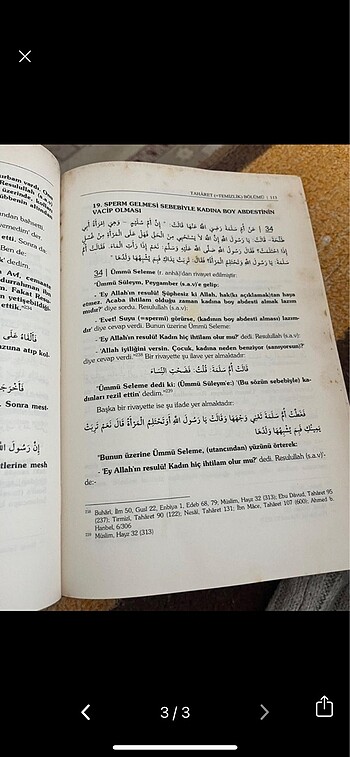 urbam vardı, Üm
Resulullah (s.a
üzerinde, koltu
übbenin altından
ından bahsetti.
yemedin" der
etti. Sonra da
Ben de:
" dedim.
Avf, cemaate
durrahman ile
Fakat Resu-
yetişebildiği
ettik."
فَأَلْقَاهُ عَلَى
azuna atıp kol-
. Sonra mest-
tlerine mesh
TAHÂRET (=TEMİZLİK) BÖLÜMÜ | 111
19. SPERM GELMESİ SEBEBİYLE KADINA BOY ABDESTİNİN
VACİP OLMASI
34 | عَنْ أُمِّ سَلَمَةَ رَضِيَ اللَّهُ عَنْهَا قَالَتْ: "إِنَّ أُمَّ سُلَيْمٍ - وَهِيَ امْرَأَةُ أَبِي
طَلْحَةَ - قَالَتْ: يَا رَسُولَ اللَّهِ إِنَّ اللَّهَ لَا يَسْتَحْيِي مِنَ الْحَقِّ فَهَلْ عَلَى الْمَرْأَةِ مِنْ غُسْلٍ
إِذَا احْتَلَمَتْ؟ فَقَالَ رَسُولُ اللَّهِ صَلَّى اللَّهُ عَلَيْهِ وَسَلَّمَ: نَعَمْ إِذَا رَأَتِ الْمَاءَ. فَقَالَتْ أُمُّ
سَلَمَةَ: يَا رَسُولَ اللَّهِ وَتَحْتَلِمُ الْمَرْأَةُ؟ فَقَالَ: تَرِبَتْ يَدَاكِ فَبِمَ يُشْبِهُهَا وَلَدُهَا؟"
34 | Ümmü Seleme (r. anhâ)'dan rivayet edilmiştir:
"Ümmü Süleym, Peygamber (s.a.v)'e gelip:
- 'Ey Allah'ın resulü! Şüphesiz ki Allah, hak(kı açıklamak)tan haya
etmez. Acaba ihtilam olduğu zaman kadına boy abdesti almak lazım
mıdır?' diye sordu. Resulullah (s.a.v):
- 'Evet! Suyu (=spermi) görürse, (kadının boy abdesti alması) lazım-
dır' diye cevap verdi. Bunun üzerine Ümmü Seleme:
- 'Ey Allah'ın resulü! Kadın hiç ihtilam olur mu?' dedi. Resulullah (s.a.v):
- 'Allah iyiliğini versin. Çocuk, kadına neden benziyor (sanıyorsun)?'
diye cevap verdi."238 Bir rivayette şu ilave yer almaktadır:
قَالَتْ أُمُّ سَلَمَةَ: قُلْتُ: فَضَحْتِ النِّسَاءَ
"Ümmü Seleme dedi ki: (Ümmü Süleym'e:) '(Bu sözün sebebiyle) ka-
dınları rezil ettin' dedim."239
Başka bir rivayette ise şu ifade yer almaktadır:
فَغَطَّتْ أُمُّ سَلَمَةَ تَعْنِي وَجْهَهَا وَقَالَتْ يَا رَسُولَ اللَّهِ أَوَتَحْتَلِمُ الْمَرْأَةُ قَالَ نَعَمْ تَرِبَتْ
يَمِينُكِ فَبِمَ يُشْبِهُهَا وَلَدُهَا
"Bunun üzerine Ümmü Seleme, (utancından) yüzünü örterek:
- 'Ey Allah'ın resulü! Kadın hiç ihtilam olur mu?' dedi. Resulullah (s.a.v)'-
de:-
238 Buhârî, İlm 50, Gusl 22, Enbiya 1, Edeb 68, 79; Müslim, Hayz 32 (313); Ebu Dâvud, Tahâret 95
(237); Tirmizî, Tahâret 90 (122); Nesâî, Tahâret 131; İbn Mâce, Tahâret 107 (600); Ahmed b.
Hanbel, 6/306
239 Müslim, Hayz 32 (313)
3 / 3